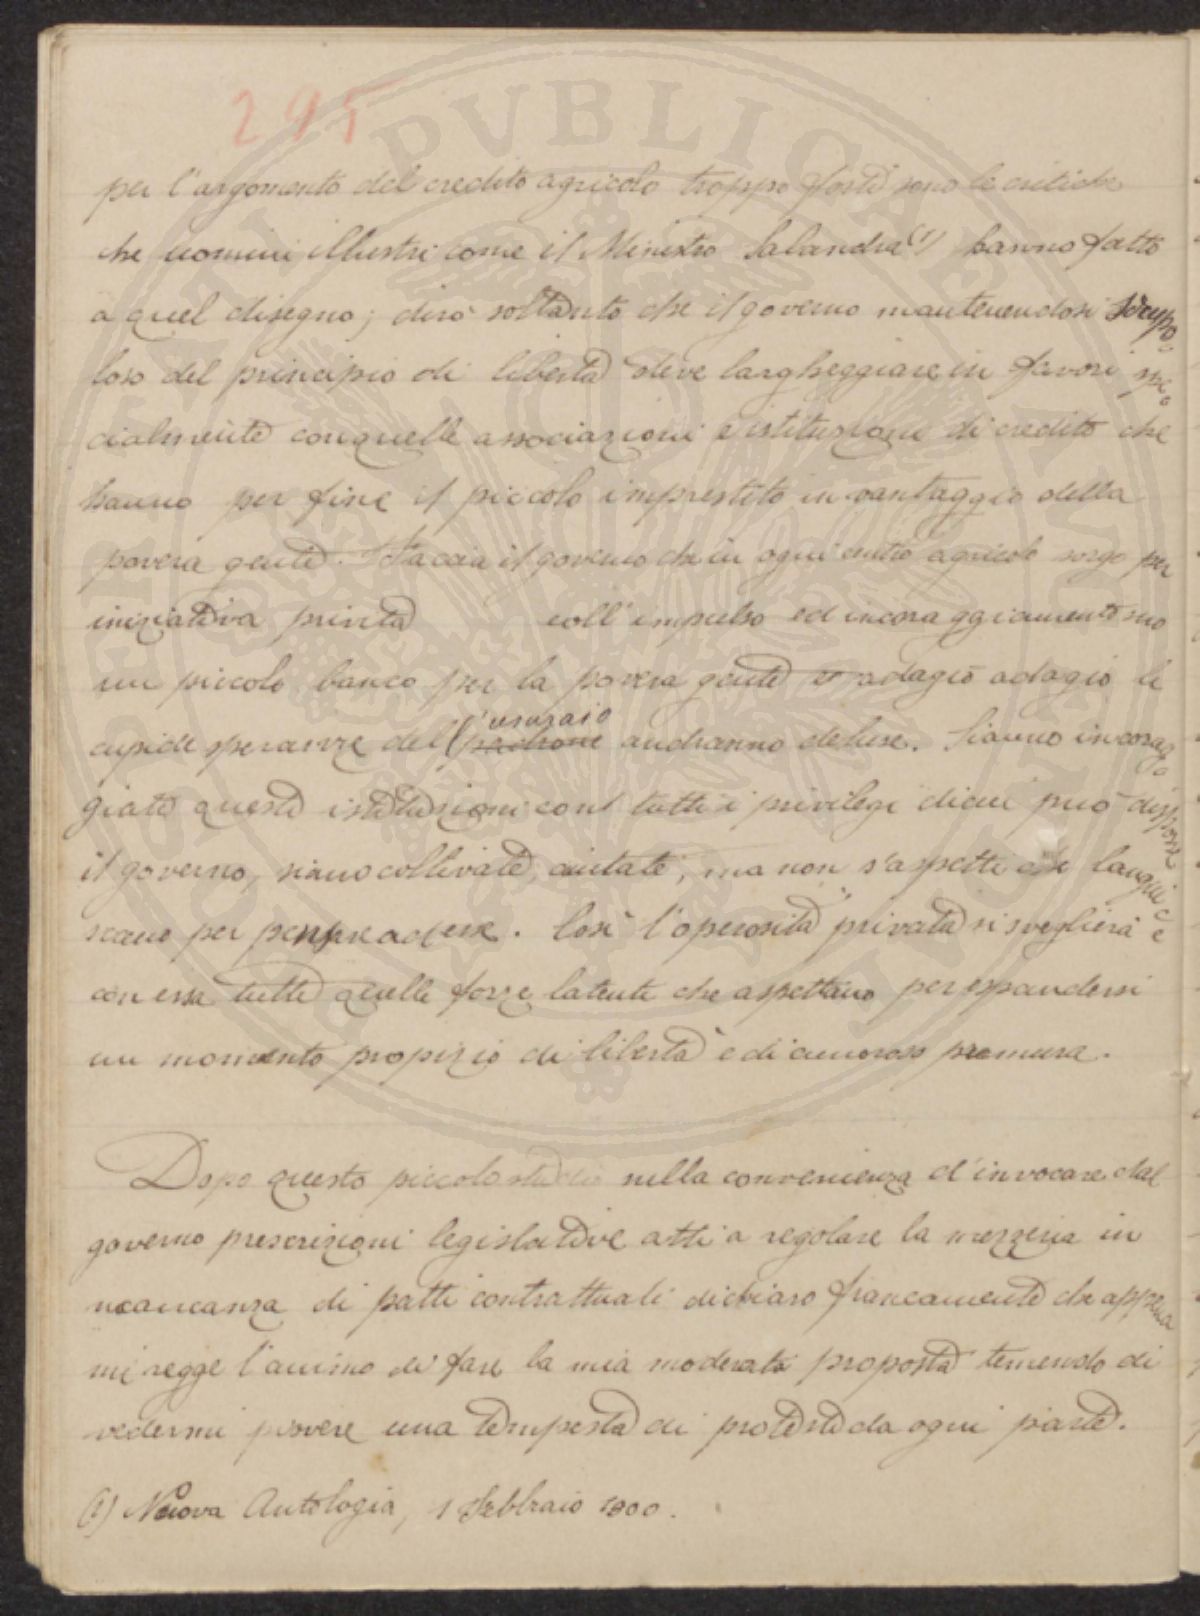 295
per l'argomento del credito agricolo troppo forti sono le critiche
che uomini illustri come il Ministro Salandra (1) hanno fatto
a quel disegno; dirò soltanto che il governo mantenendosi scrupo=
loso del principio di libertà deve largheggiare in favori spe=
cialmente con quelle associazioni e istituzioni di credito che
hanno per fine il piccolo imprestito in vantaggio della
povera gente. Faccia il governo che in ogni centro agricolo sorga per
iniziativa privata coll'impulso ed incoraggiamento suo
un piccolo banco per la povera gente e adagio adagio le
cupide speranze dell'usuraio padrone andranno deluse. Siano incorag=
giate queste istituzioni con tutti i privilegi di cui può disporre
il governo, siano coltivate, aiutate, ma non s'aspetti che langui=
scano per Così l'operosità privata si sveglierà e
con essa tutte quelle forze latenti che aspettano per espandersi
un momento propizio di libertà e di amorosa premura.
Dopo questo piccolo studio sulla convenienza d'invocare dal
governo prescrizioni legislative atti a regolare la mezzeria in
mancanza di patti contrattuali dichiaro francamente che appena
mi regge l'animo di fare la mia moderata proposta temendo di
vedermi piovere una tempesta di proteste da ogni parte.
(1) Nuova Antologia, 1 Febbraio 1900.